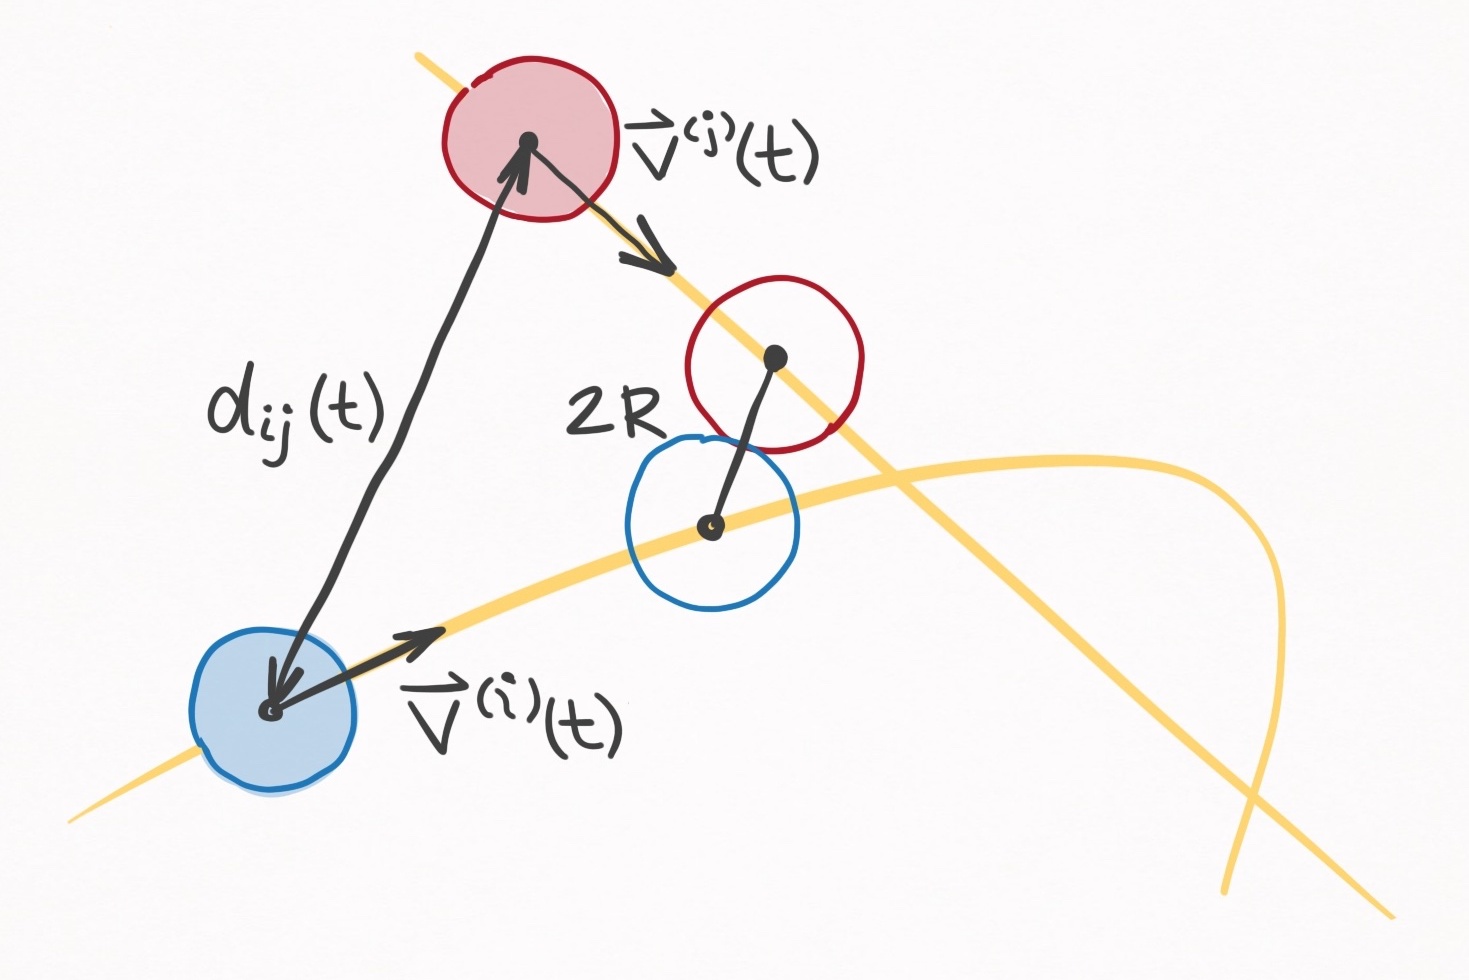 v⃗⁽ʲ⁾(t)
dᵢⱼ(t)
2R
v⃗⁽ⁱ⁾(t)